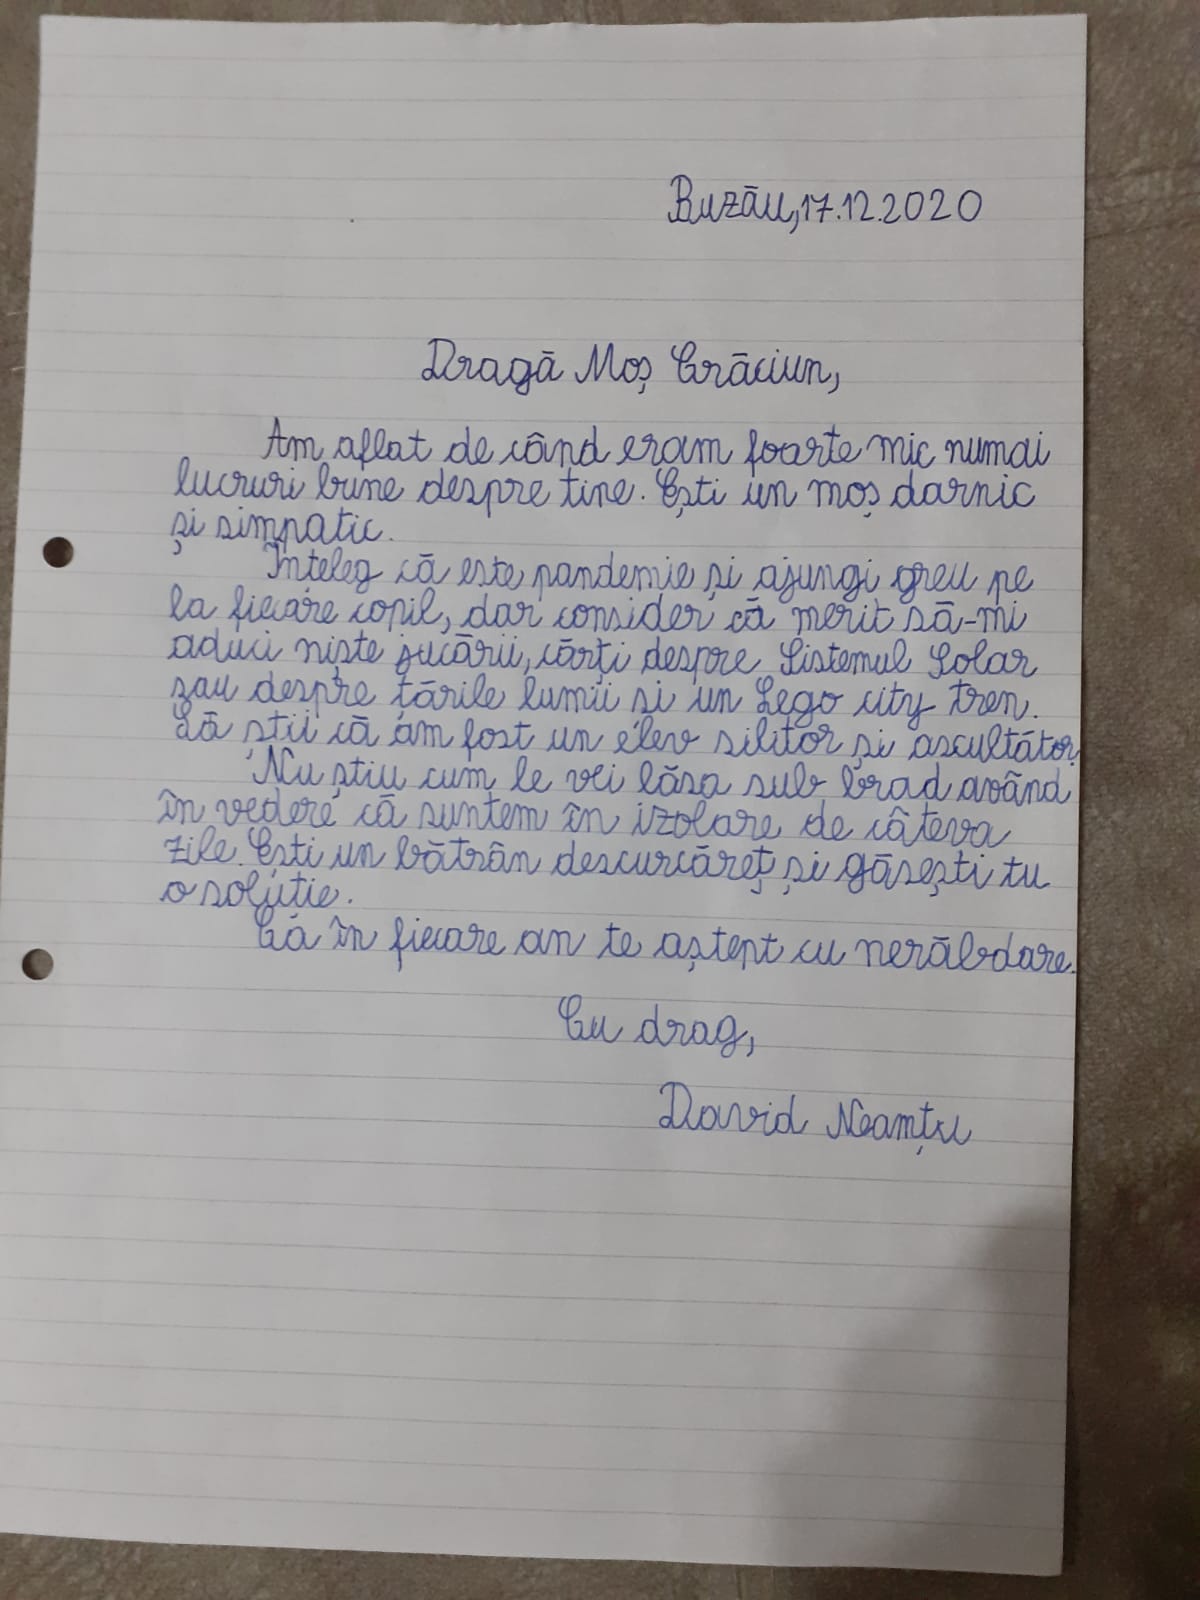 Buzău, 17.12.2020
Dragă Moș Crăciun,
Am aflat de când eram foarte mic numai
lucruri bune despre tine. Ești un moș darnic
și simpatic.
Înțeleg că este pandemie și ajungi greu pe
la fiecare copil, dar consider că merit să-mi
aduci niște jucării, cărți despre Sistemul Solar
sau despre țările lumii și un Lego city tren.
Să știi că am fost un elev silitor și ascultător.
Nu știu cum le vei lăsa sub brad având
în vedere că suntem în izolare de câteva
zile. Ești un bătrân descurcăreț și găsești tu
o soluție.
Ca în fiecare an te aștept cu nerăbdare.
Cu drag,
David Neamțu